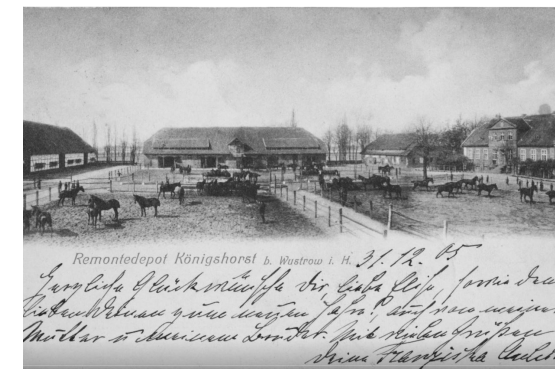 Remontedepot Königshorst b. Wustrow i. H. 31.12.05
Herzliche Glückwünsche Dir, liebe Elise, sowie den
lieben Deinen zum neuen Jahre, auch von meiner
Mutter u. meinem Bruder. Mit vielen Grüßen
Deine Franziska